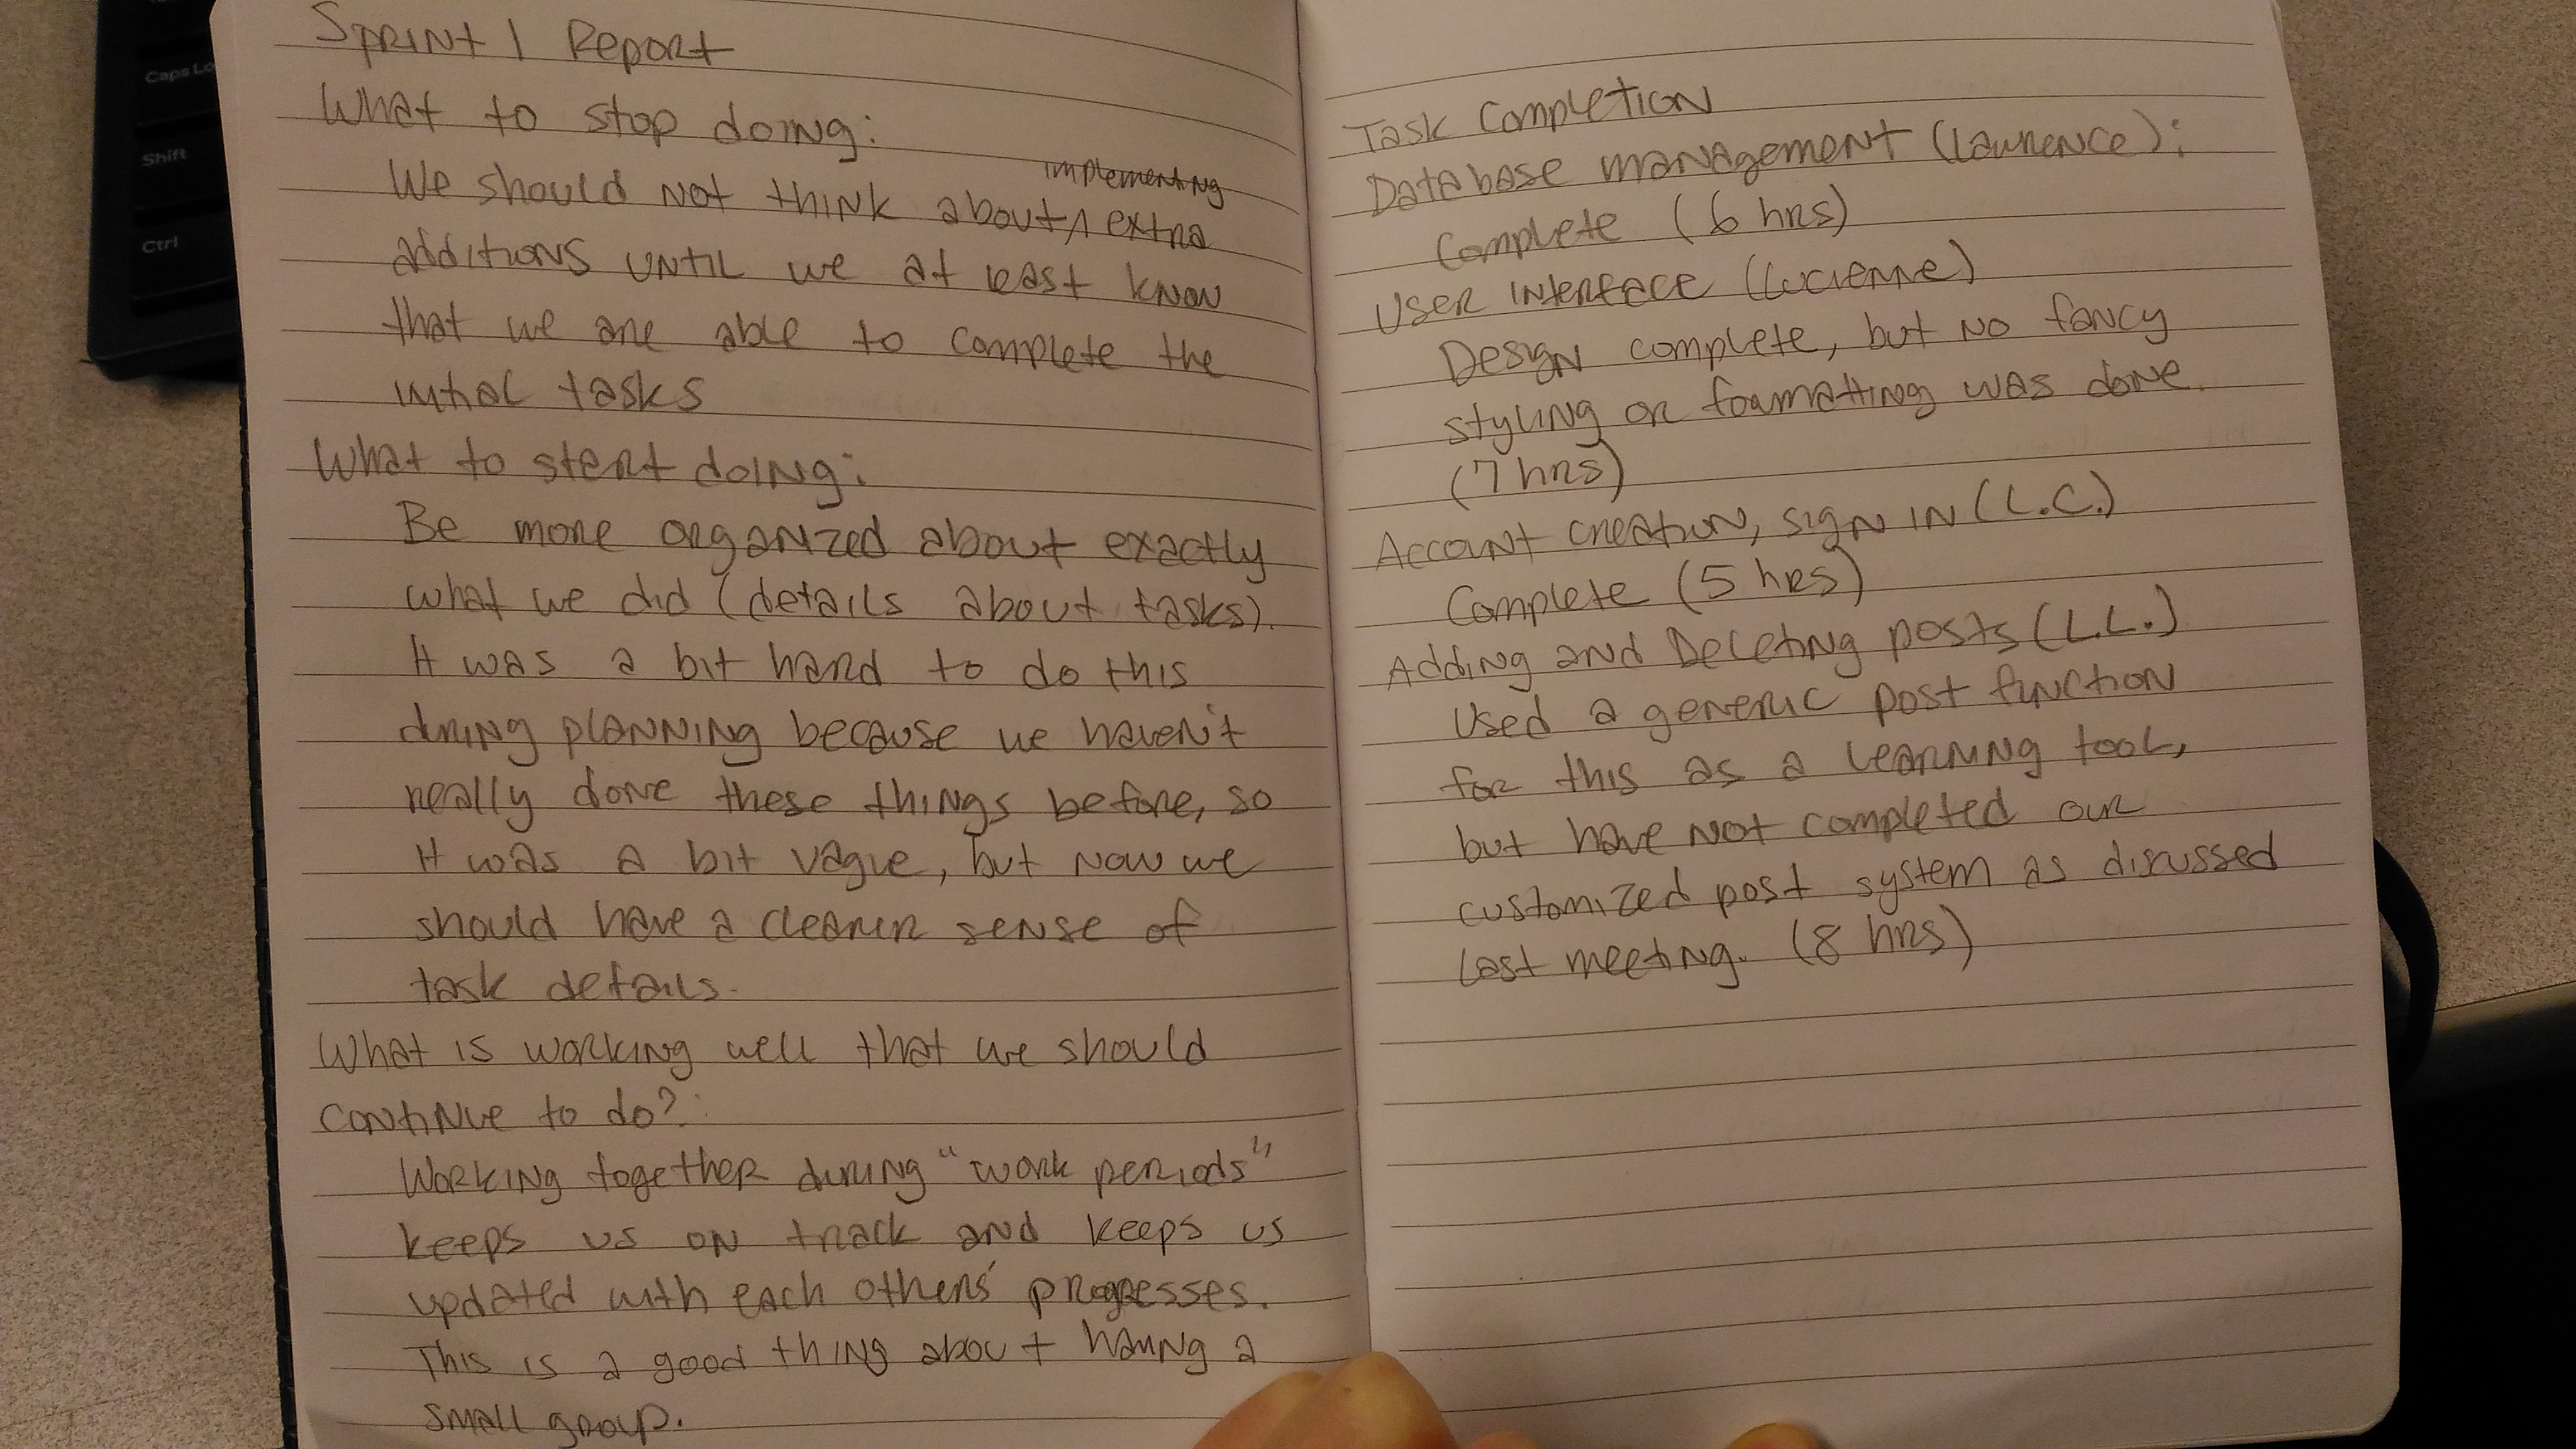 Caps Lo
Shift
Ctrl
Sprint 1 Report
What to stop doing:
We should not think about ^ implementing extra
additions until we at least know
that we are able to complete the
initial tasks
What to start doing:
Be more organized about exactly
what we did (details about tasks).
It was a bit hard to do this
during planning because we haven't
really done these things before, so
it was a bit vague, but now we
should have a clearer sense of
task details.
What is working well that we should
continue to do?:
Working together during "work periods"
keeps us on track and keeps us
updated with each others' progresses.
This is a good thing about having a
small group.
Task Completion
Database management (Lawrence):
Complete (6 hrs)
User Interface (Lucienne)
Design complete, but no fancy
styling or formatting was done.
(7 hrs)
Account creation, sign in (L.C.)
Complete (5 hrs)
Adding and Deleting posts (L.L.)
Used a generic post function
for this as a learning tool,
but have not completed our
customized post system as discussed
last meeting. (8 hrs)